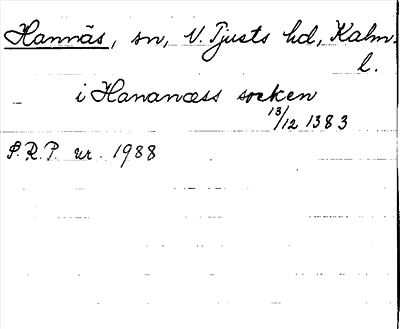 Hannäs, sn, N. Tjusts hd, Kalm.
l.
i Hananæss socken
13/12 1383
S.R.P. nr. 1988